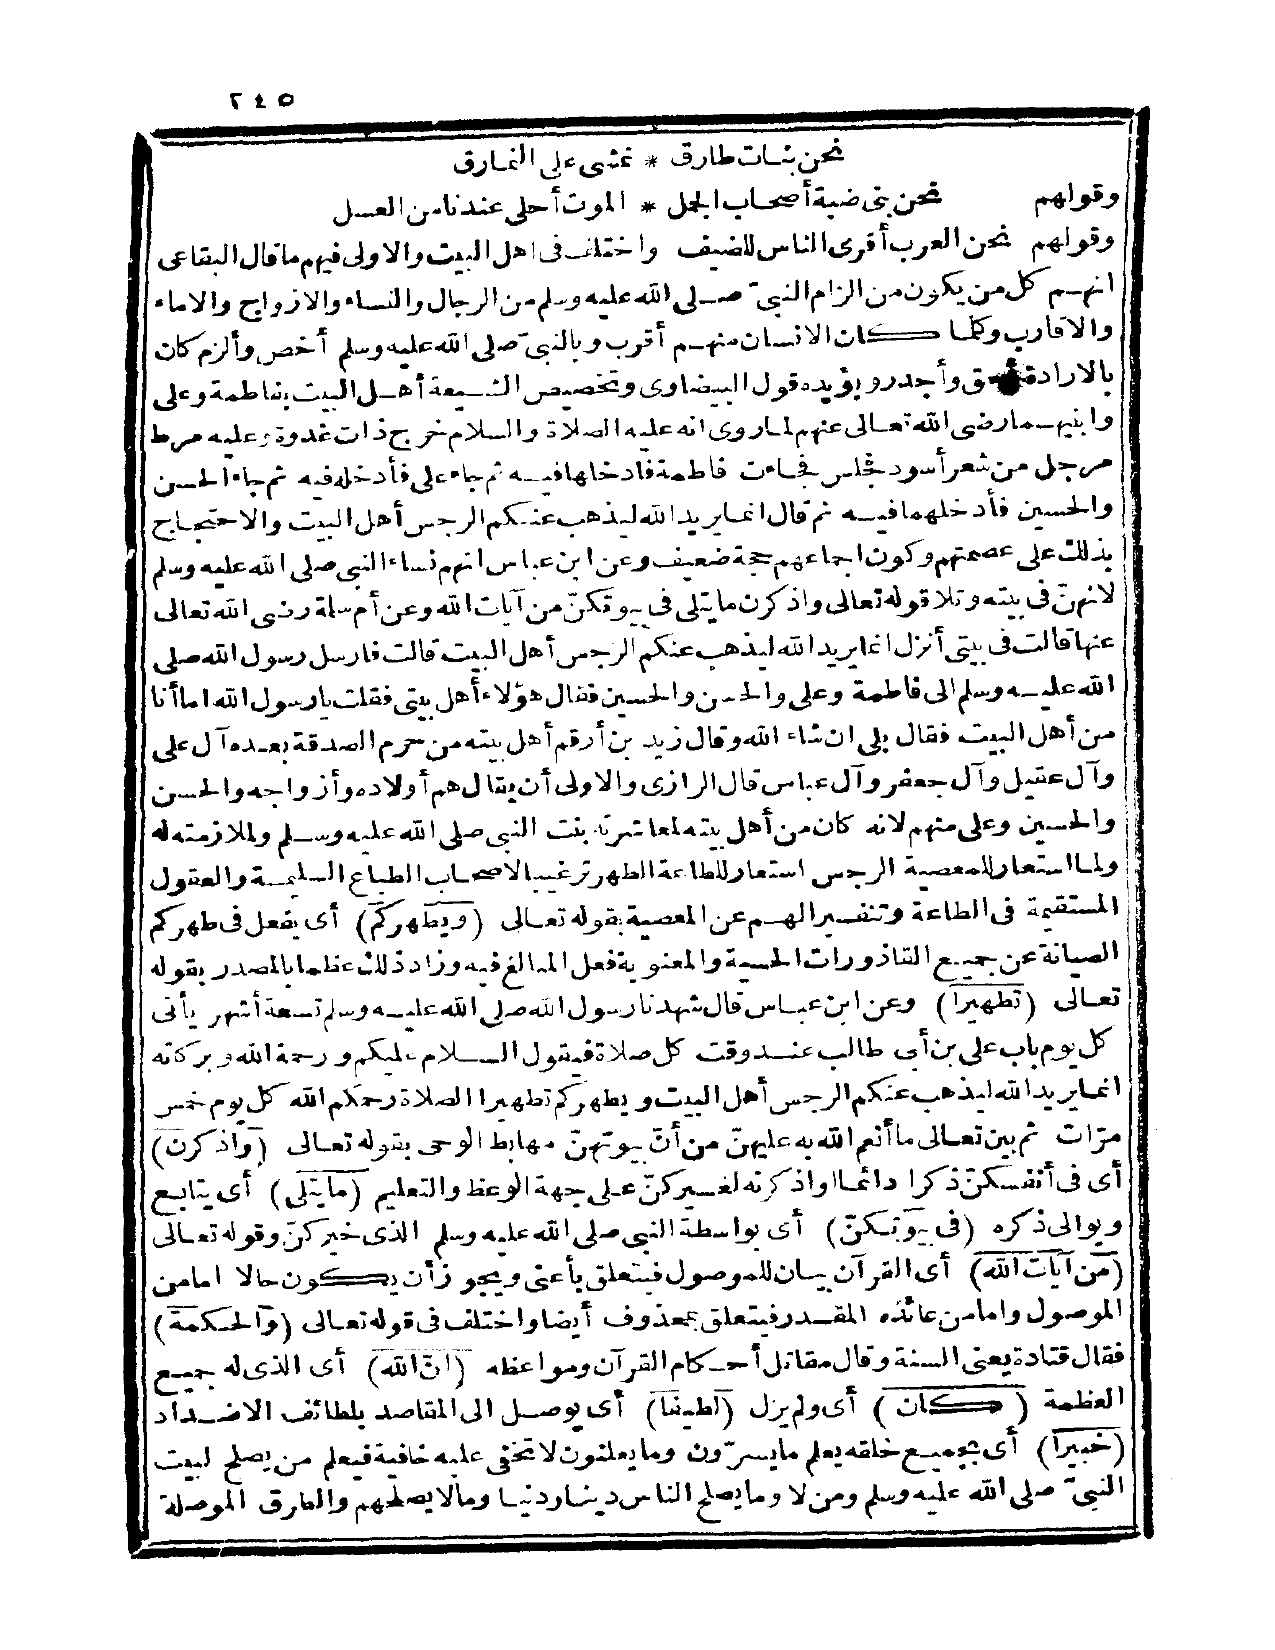 ٢٤٥
نحن بنات طارق * نمشى على النمارق
وقولهم نحن بنى ضبة أصحاب الجمل * الموت أحلى عندنا من العسل
وقولهم نحن العرب أقرى الناس للضيف واختلف فى اهل البيت والاولى فيهم ما قال البقاعى
انهم كل من يكون من الزام النبى صلى الله عليه وسلم من الرجال والنساء والازواج والاماء
والاقارب وكلما كان الانسان منهم أقرب وبالنبى صلى الله عليه وسلم أخص وألزم كان
بالارادة وأجدر ويؤيده قول البيضاوى وتخصيص الشيعة أهل البيت بفاطمة وعلى
وابنيهما رضى الله تعالى عنهم لما روى انه عليه الصلاة والسلام خرج ذات غدوة وعليه مرط
مرجل من شعر أسود فجلس فجاءت فاطمة فادخلها فيه ثم جاء على فأدخله فيه ثم جاء الحسن
والحسين فأدخلهما فيه ثم قال انما يريد الله ليذهب عنكم الرجس أهل البيت والاحتجاج
بذلك على عصمتهم وكون اجماعهم حجة ضعيف وعن ابن عباس انهم نساء النبى صلى الله عليه وسلم
لانهنّ فى بيته وتلا قوله تعالى واذكرن ما يتلى فى بيوتكنّ من آيات الله وعن أم سلة رضى الله تعالى
عنها قالت فى بيتى أنزل انما يريد الله ليذهب عنكم الرجس أهل البيت قالت فارسل رسول الله صلى
الله عليه وسلم الى فاطمة وعلى والحسن والحسين فقال هؤلاء أهل بيتى فقلت يا رسول الله اما أنا
من أهل البيت فقال بلى ان شاء الله وقال زيد بن أرقم أهل بيته من حرم الصدقة بعده آل على
وآل عقيل وآل جعفر وآل عباس قال الرازى والاولى أن يقال هم أولاده وأزواجه والحسن
والحسين وعلى منهم لانه كان من أهل بيته لمعاشرته بنت النبى صلى الله عليه وسلم ولملازمته له
ولما استعار للمعصية الرجس استعار للطاعة الطهر ترغيبا لاصحاب الطباع السليمة والعقول
المستقيمة فى الطاعة وتنفيرا لهم عن المعصية بقوله تعالى (ويطهركم) أى يفعل فى طهركم
الصيانة عن جميع القاذورات الحسية والمعنوية فعل المبالغ فيه وزاد ذلك عظما بالمصدر بقوله
تعالى (تطهيرا) وعن ابن عباس قال شهدنا رسول الله صلى الله عليه وسلم تسعة أشهر يأتى
كل يوم باب على بن أبى طالب عند وقت كل صلاة فيقول السلام عليكم ورحمة الله وبركاته
انما يريد الله ليذهب عنكم الرجس أهل البيت ويطهركم تطهيرا الصلاة رحمكم الله كل يوم خمس
مرّات ثم بين تعالى ما أنعم الله به عليهنّ من أنّ بيوتهنّ مهابط الوحى بقوله تعالى (واذكرن)
أى فى أنفسكنّ ذكرا دائما واذكرنه لغيركنّ على جهة الوعظ والتعليم (ما يتلى) أى يتابع
ويوالى ذكره (فى بيوتكنّ) أى بواسطة النبى صلى الله عليه وسلم الذى خيركنّ وقوله تعالى
(من آيات الله) أى القرآن بيان للموصول فيتعلق بأعنى ويجوز أن يكون حالا اما من
الموصول واما من عائده المقدر فيتعلق بمحذوف أيضا واختلف فى قوله تعالى (والحكمة)
فقال قتادة يعنى السنة وقال مقاتل أحكام القرآن ومواعظه (انّ الله) أى الذى له جميع
العظمة (كان) أى ولم يزل (لطيفا) أى يوصل الى المقاصد بلطائف الاضداد
(خبيرا) أى بجميع خلقه يعلم ما يسرّون وما يعلنون لا تخفى عليه خافية فيعلم من يصلح لبيت
النبىّ صلى الله عليه وسلم ومن لا وما يصلح الناس دينا ودنيا وما لا يصلحهم والطرق الموصلة